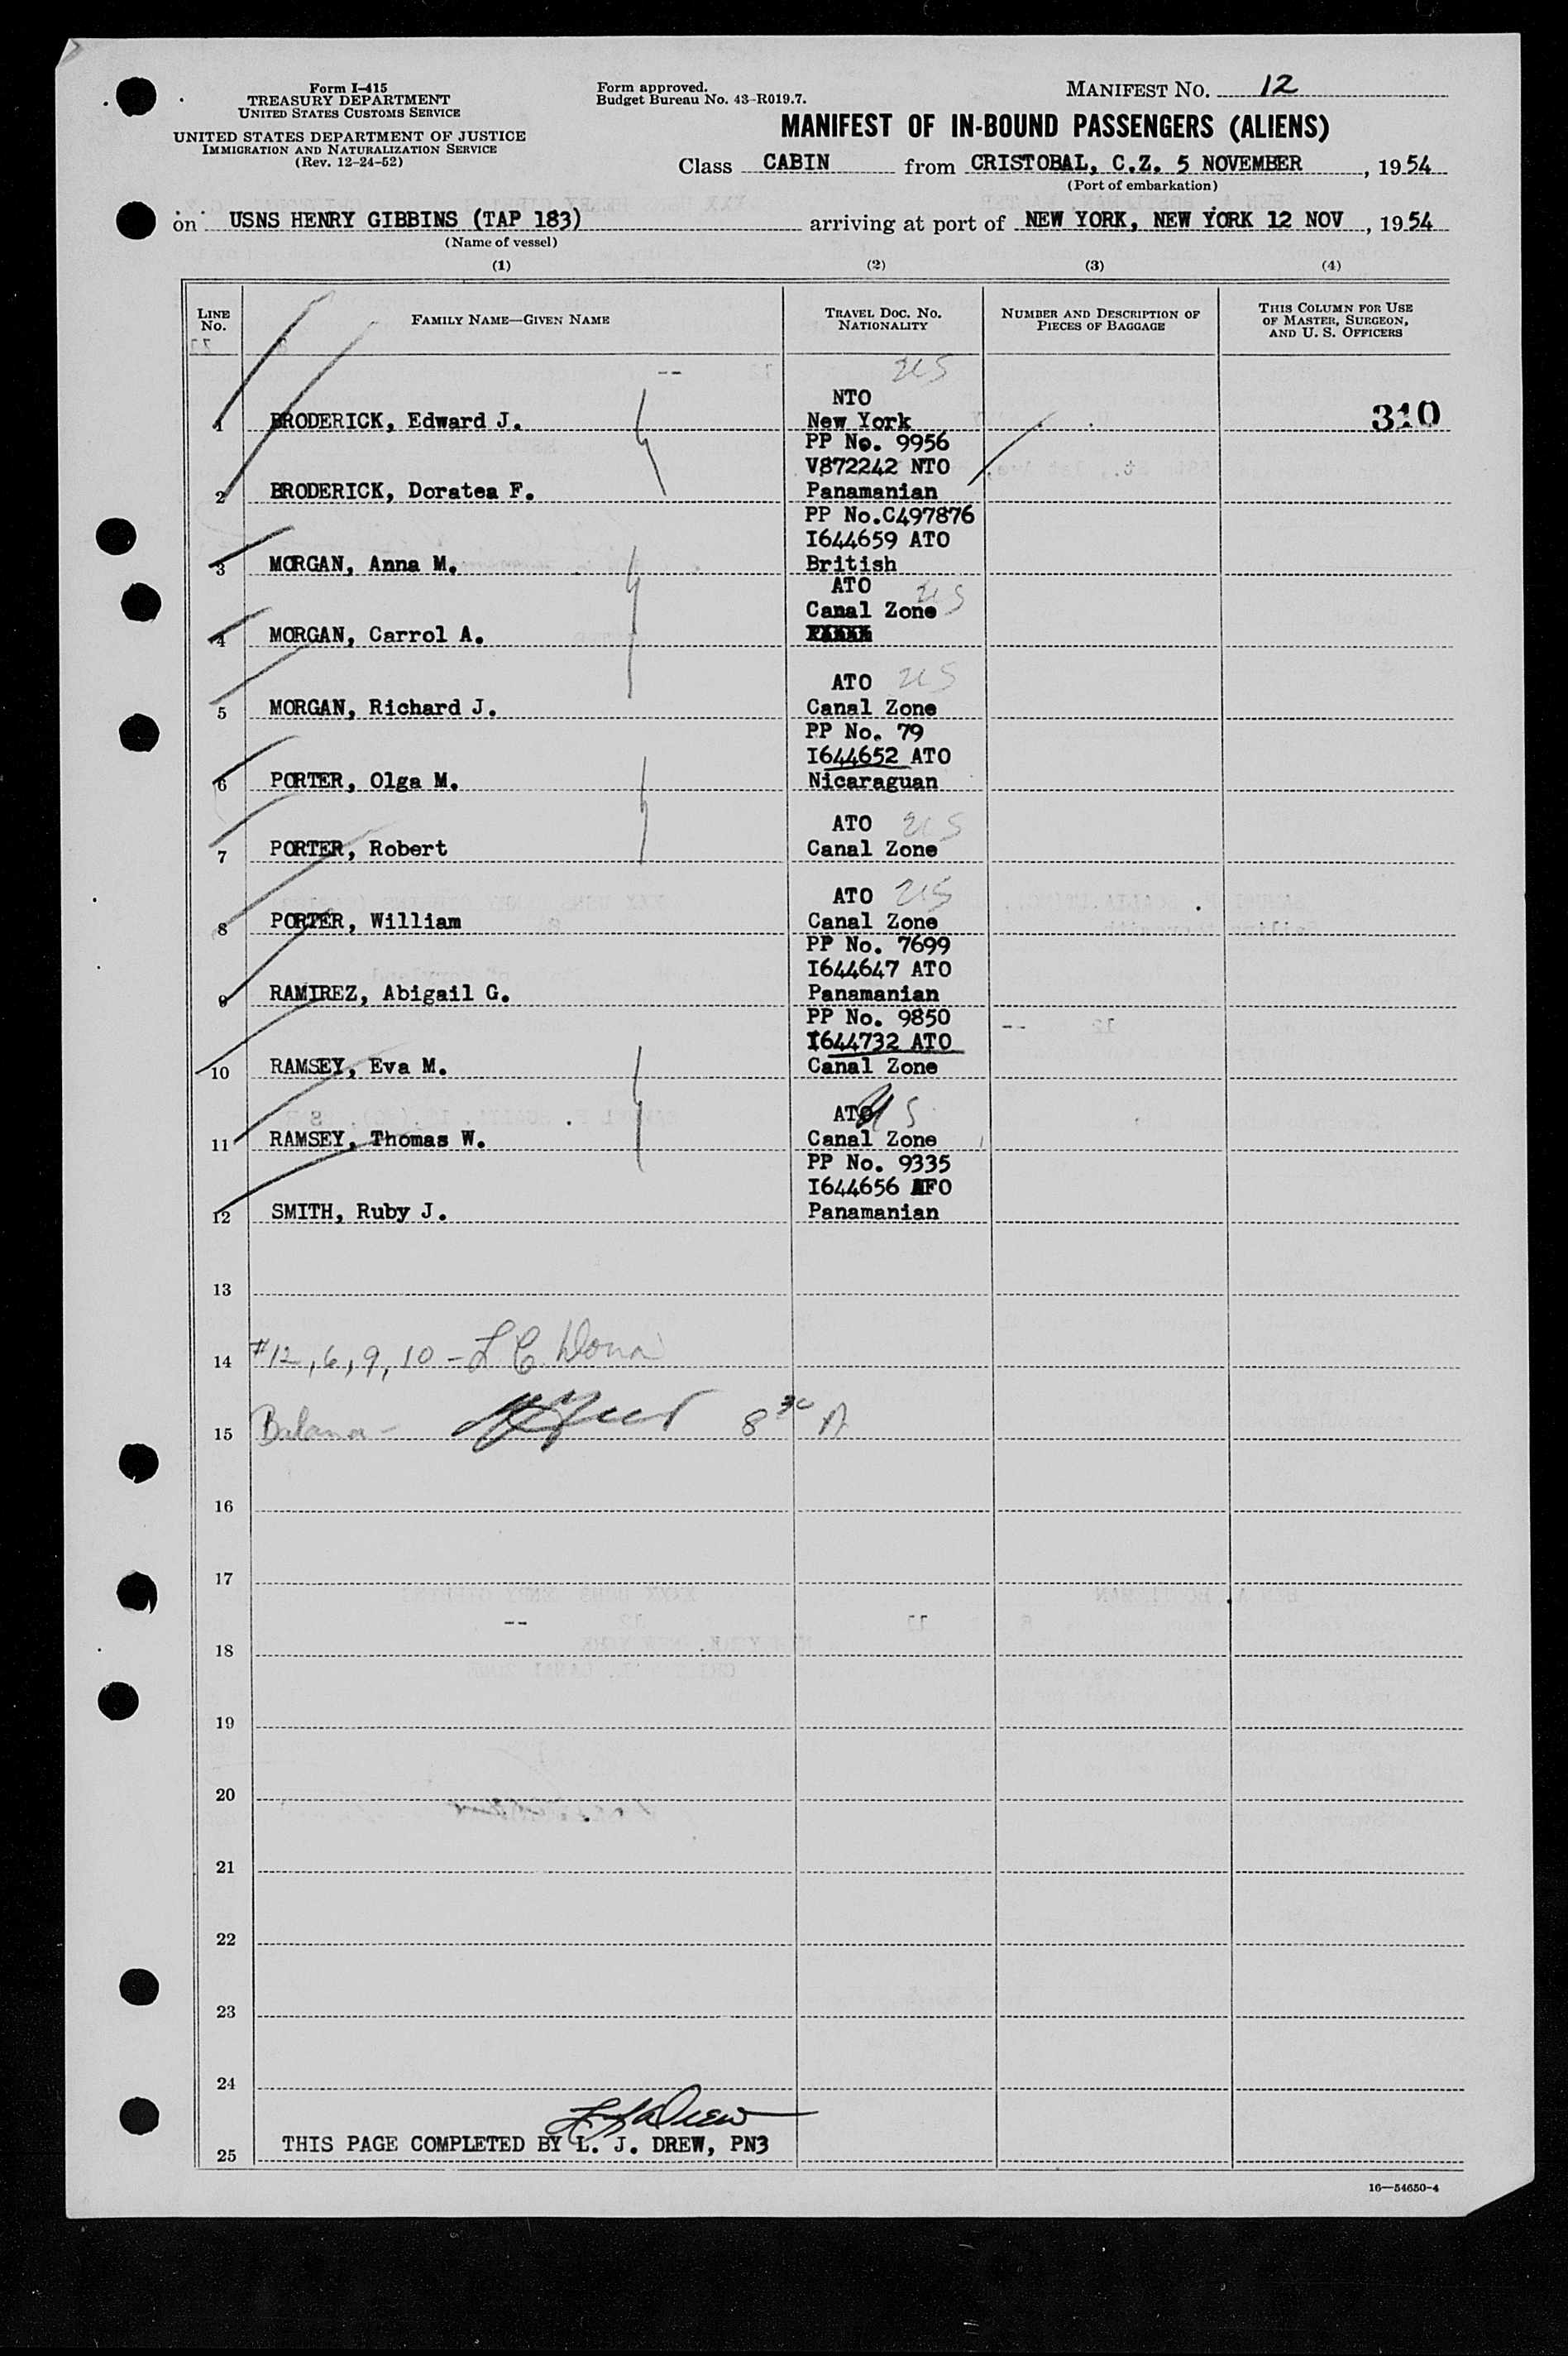 Form I-415
TREASURY DEPARTMENT
UNITED STATES CUSTOMS SERVICE
UNITED STATES DEPARTMENT OF JUSTICE
IMMIGRATION AND NATURALIZATION SERVICE
(Rev. 12-24-52)
Form approved.
Budget Bureau No. 43-R019.7.
MANIFEST NO. 12
MANIFEST OF IN-BOUND PASSENGERS (ALIENS)
Class CABIN from CRISTOBAL, C.Z. 5 NOVEMBER, 1954
(Port of embarkation)
on USNS HENRY GIBBINS (TAP 183) arriving at port of NEW YORK, NEW YORK 12 NOV, 1954
(Name of vessel)
(1) (2) (3) (4)
LINE No. FAMILY NAME—GIVEN NAME TRAVEL DOC. NO. NATIONALITY NUMBER AND DESCRIPTION OF PIECES OF BAGGAGE THIS COLUMN FOR USE OF MASTER, SURGEON, AND U. S. OFFICERS
US
NTO
1 BRODERICK, Edward J. New York 310
PP No. 9956
V872242 NTO
2 BRODERICK, Doratea F. Panamanian
PP No.C497876
I644659 ATO
3 MORGAN, Anna M. British
ATO US
Canal Zone
4 MORGAN, Carrol A.
ATO US
5 MORGAN, Richard J. Canal Zone
PP No. 79
I644652 ATO
6 PORTER, Olga M. Nicaraguan
ATO US
7 PORTER, Robert Canal Zone
ATO US
8 PORTER, William Canal Zone
PP No. 7699
I644647 ATO
9 RAMIREZ, Abigail G. Panamanian
PP No. 9850
I644732 ATO
10 RAMSEY, Eva M. Canal Zone
ATO US
11 RAMSEY, Thomas W. Canal Zone
PP No. 9335
I644656
12 SMITH, Ruby J. Panamanian
13
14 #12, 6, 9, 10 -
15 8 30 A
16
17
18
19
20
21
22
23
24
25 THIS PAGE COMPLETED BY L. J. DREW, PN3
16—54650-4